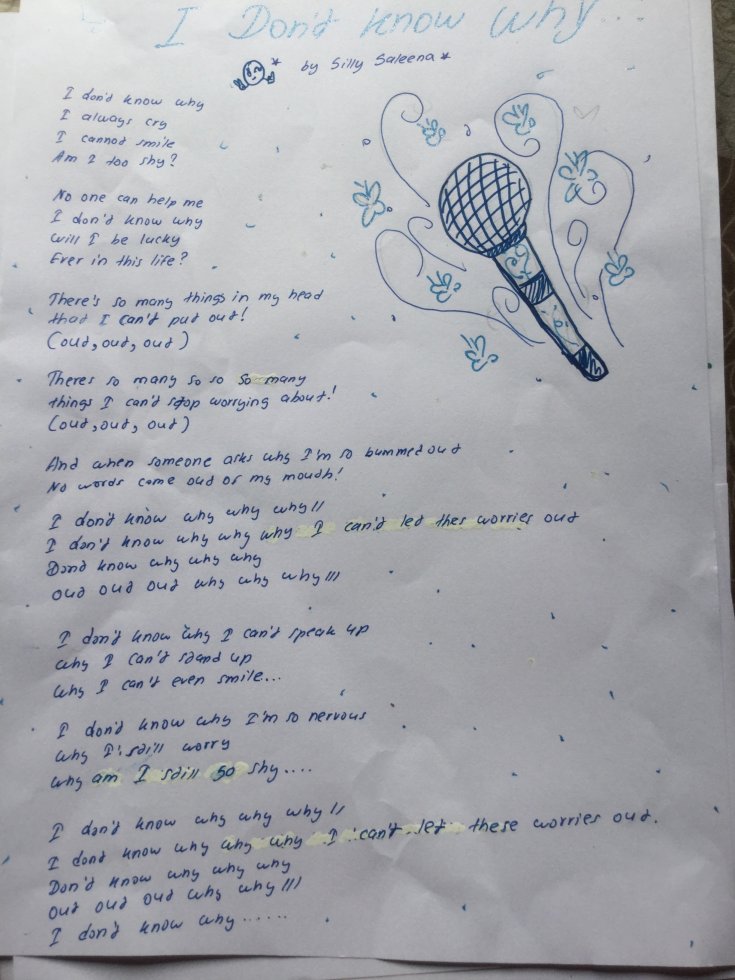 I Don't know why...
by Silly Saleena*
I don't know why
I always cry
I cannot smile
Am I too shy?
No one can help me
I don't know why
will I be lucky
Ever in this life?
There's so many things in my head
that I can't put out!
(out, out, out)
Theres so many so so so many
things I can't stop worrying about!
(out, out, out)
And when someone asks why I'm so bummed out
No words come out of my mouth!
I don't know why why why!!
I don't know why why why I can't let thes worries out
Dont know why why why
out out out why why why!!!
I don't know why I can't speak up
why I can't stand up
why I can't even smile...
I don't know why I'm so nervous
why I still worry
why am I still so shy....
I don't know why why why!!
I dont know why why why I can't let these worries out.
Don't know why why why
out out out why why!!!
I don't know why......